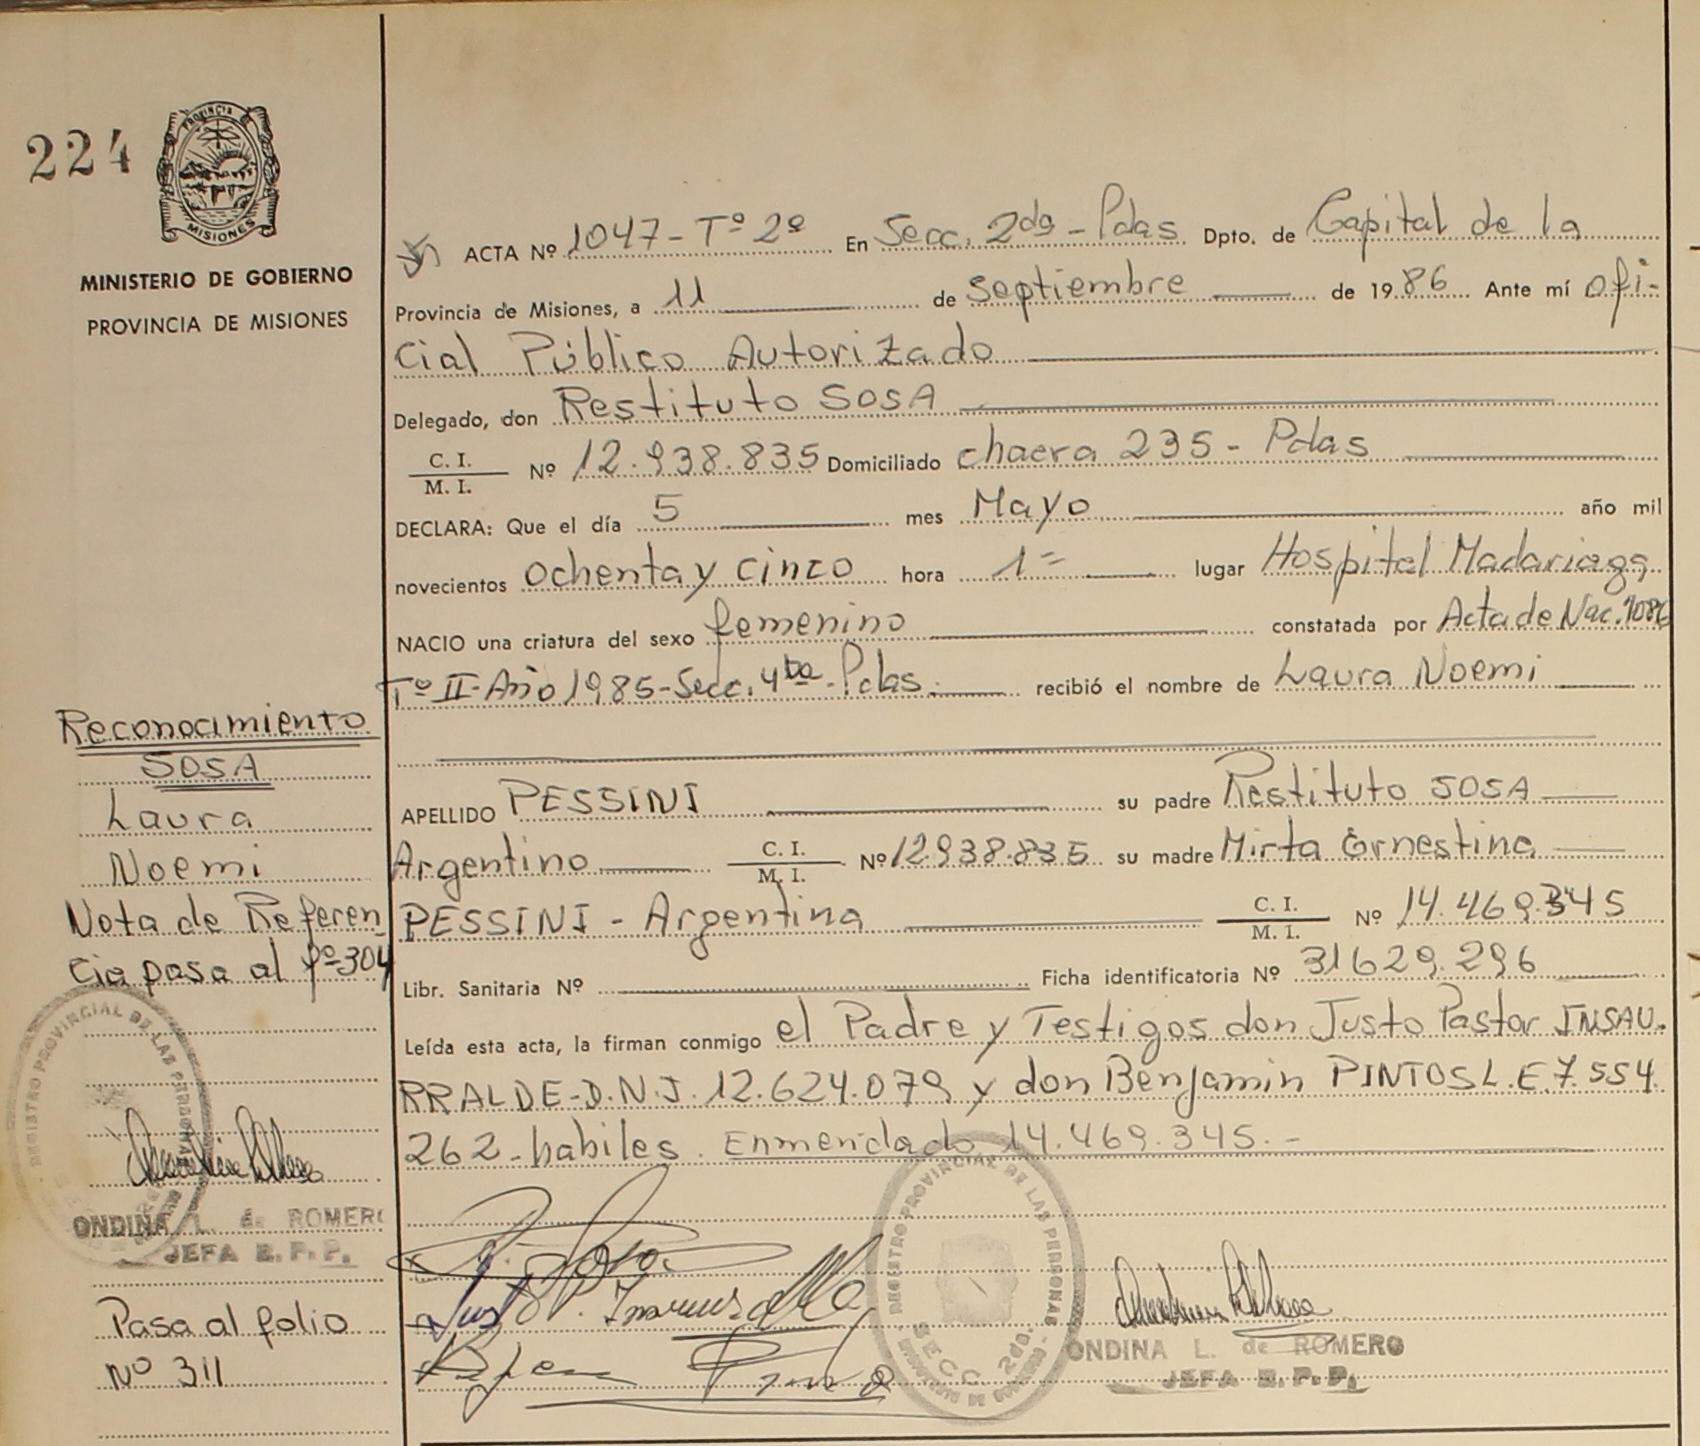 224
PROVINCIA DE
MISIONES
MINISTERIO DE GOBIERNO
PROVINCIA DE MISIONES
ACTA Nº 1047 - Tº 2º En Secc. 2da - Pdas Dpto. de Capital de la
Provincia de Misiones, a 11 de septiembre de 1986 Ante mí ofi-
cial Público Autorizado
Delegado, don Restituto SOSA
C. I.
M. I. Nº 12.938.835 Domiciliado chacra 235 - Pdas
DECLARA: Que el día 5 mes Mayo año mil
novecientos ochenta y cinco hora 1= lugar Hospital Madariaga
NACIO una criatura del sexo femenino constatada por Acta de Nac. 1086
Tº II - Año 1985 - Secc. 4ta - Pdas. recibió el nombre de Laura Noemi
APELLIDO PESSINI su padre Restituto SOSA
Argentino C. I.
M. I. Nº 12938.835 su madre Mirta Ernestina
PESSINI - Argentina C. I.
M. I. Nº 14.469.345
Libr. Sanitaria Nº Ficha identificatoria Nº 31629.296
Leída esta acta, la firman conmigo el Padre y Testigos don Justo Pastor INSAU.
RRALDE - D.N.I. 12.624.079 y don Benjamin PINTOS L.E 7.554.
262 - habiles. Enmendado 14.469.345. -
Reconocimiento
SOSA
Laura
Noemi
Nota de Referen
cia pasa al fº-304
REGISTRO PROVINCIAL DE LAS PERSONAS
ONDINA L. de ROMERO
JEFA E. P. P.
Pasa al folio
Nº 311
REGISTRO PROVINCIAL DE LAS PERSONAS
SECC. 2da.
ONDINA L. de ROMERO
JEFA E. P. P.